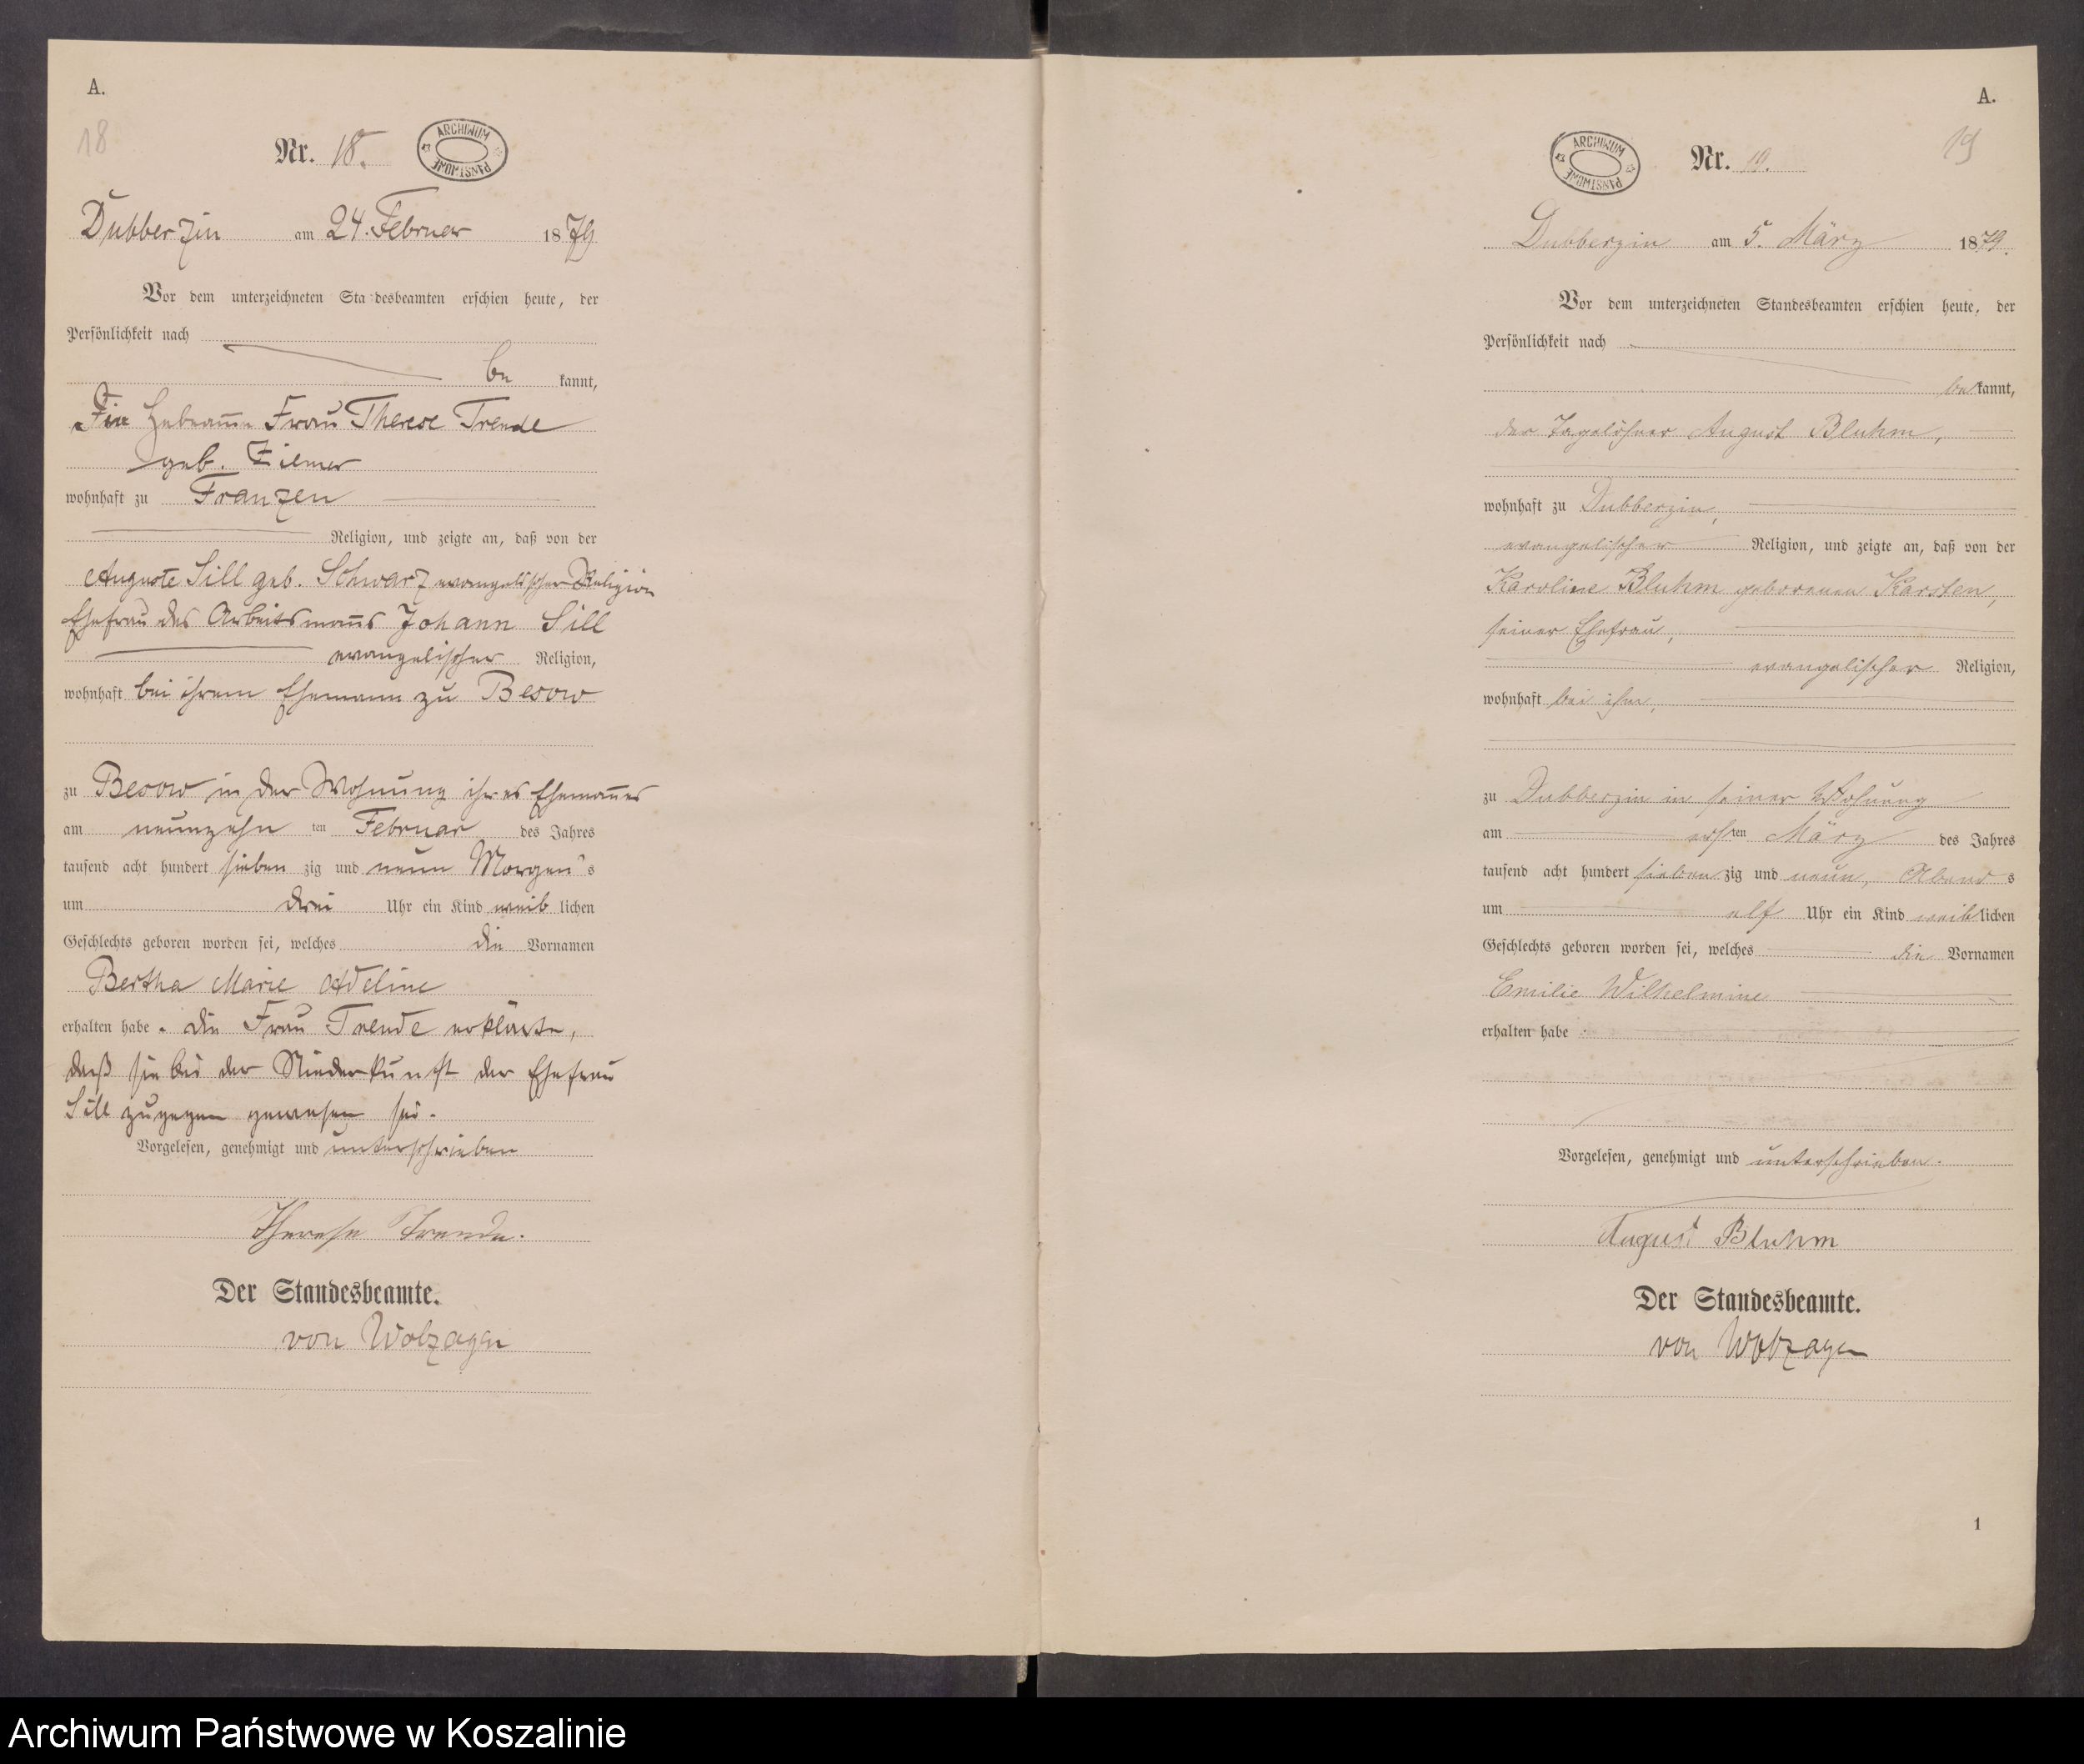 A.
18
Nr. 18.
ARCHIWUM PAŃSTWOWE
Dubberzin am 24. Februar 1879
Vor dem unterzeichneten Standesbeamten erschien heute, der
Persönlichkeit nach
be kannt,
Die Hebeam̅e Frau Therese Trende
geb. Ziemer
wohnhaft zu Franzen
Religion, und zeigte an, daß von der
Auguste Sill geb. Schwarz evangelischer Religion
Ehefrau des Arbeitsman̅s Johann Sill
evangelischer Religion,
wohnhaft bei ihrem Ehemann zu Besow
zu Besow in der Wohnung ihres Eheman̅es
am neunzehn ten Februar des Jahres
tausend acht hundert sieben zig und neun Morgen's
um drei Uhr ein Kind weib lichen
Geschlechts geboren worden sei, welches die Vornamen
Bertha Marie Adeline
erhalten habe. die Frau Trende erklärte,
daß sie bei der Niederkunft der Ehefrau
Sill zugegen gewesen sei.
Vorgelesen, genehmigt und unterschrieben
Therese Trende.
Der Standesbeamte.
von Wobzagen
A.
19
ARCHIWUM PAŃSTWOWE
Nr. 19.
Dubberzin am 5. März 1879.
Vor dem unterzeichneten Standesbeamten erschien heute, der
Persönlichkeit nach
be kannt,
der Tagelöhner August Bluhm,
wohnhaft zu Dubberzin,
evangelischer Religion, und zeigte an, daß von der
Karoline Bluhm geborenen Karsten,
seiner Ehefrau,
evangelischer Religion,
wohnhaft bei ihm,
zu Dubberzin in seiner Wohnung
am ersten März des Jahres
tausend acht hundert sieben zig und neun, Abend s
um elf Uhr ein Kind weib lichen
Geschlechts geboren worden sei, welches die Vornamen
Emilie Wilhelmine
erhalten habe.
Vorgelesen, genehmigt und unterschrieben.
August Bluhm
Der Standesbeamte.
von Wobzagen
1
Archiwum Państwowe w Koszalinie